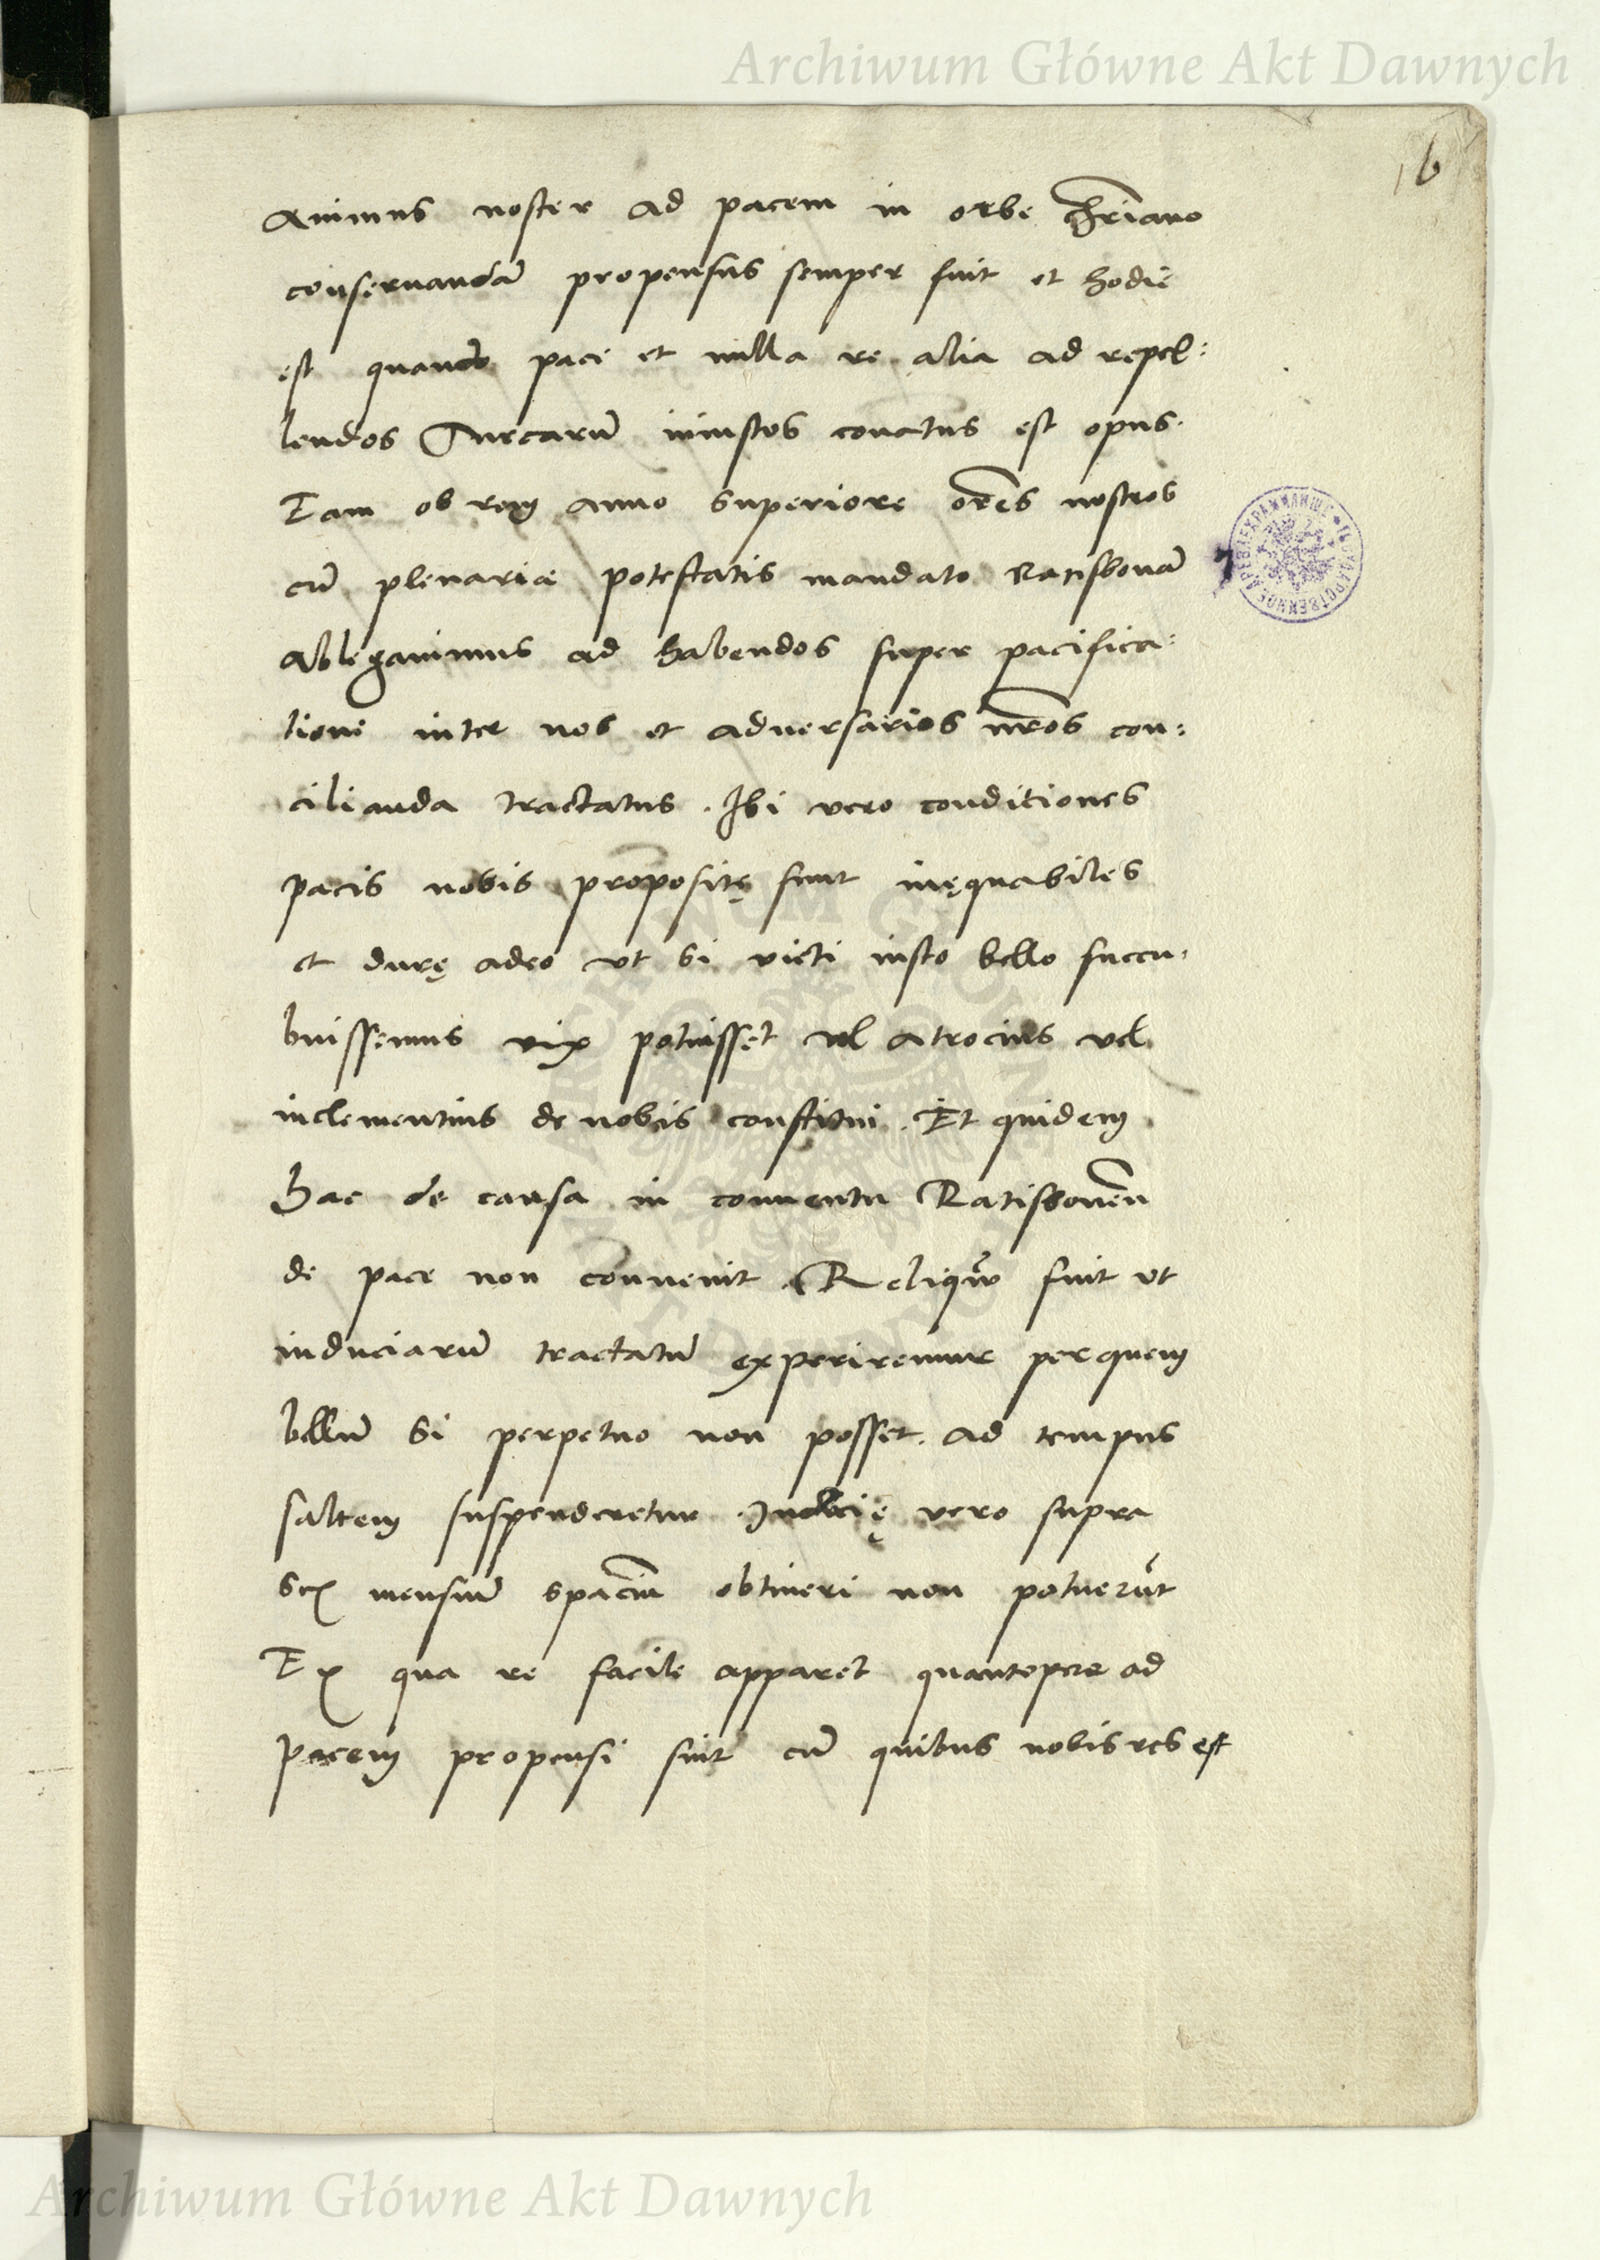 Archiwum Główne Akt Dawnych
16
Animus noster ad pacem in orbe chr̄iano
conseruandā propensus semper fuit et hodie
est quando pace et nulla re alia ad repel:
lendos Turcarū iniustos conatus est opus.
Eam ob rem anno superiore or̄es nostros
cū plenariæ potestatis mandato Ratisbonā
ablegauimus ad habendos super pacifica:
tione inter nos et aduersarios nr̄os con:
cilianda tractatus. Ibi vero conditiones
pacis nobis propositę sunt inęquabiles
et durę adeo vt si victi iusto bello succu:
buissemus vix potuisset vel atrocius vel
inclementius de nobis constitui. Et quidem
hac de causa in conuentu Ratisbonen̄
de pace non conuenit. Reliquū fuit vt
induciarū tractatū experiremur per quem
bellū si perpetuo non posset. ad tempus
saltem suspenderetur. Inducię vero supra
sex mensiū spaciū obtineri non potuerūt
Ex qua re facile apparet quantopere ad
pacem propensi sint cū quibus nobis res est
ARCHIWUM GŁÓWNE
AKT DAWNYCH
Archiwum Główne Akt Dawnych